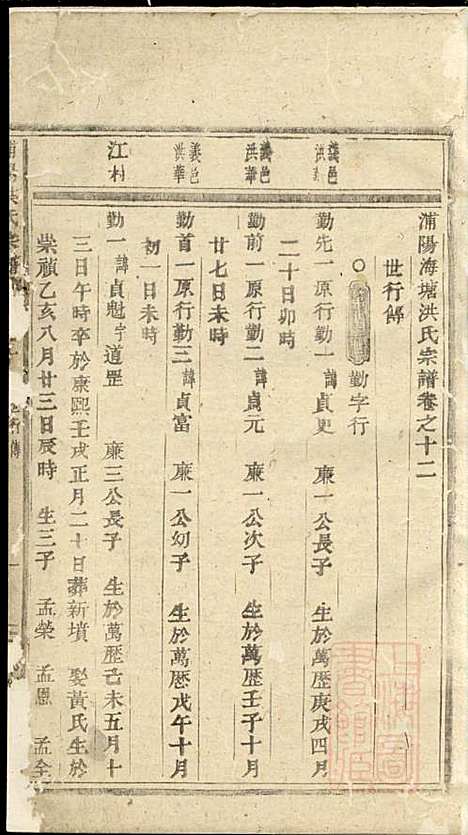 浦陽海塘洪氏宗譜卷之十二
世行傳
勤字行
義邑洪華
勤先一原行勤一諱貞吏 廉一公長子 生於萬歷庚戌四月
二十日卯時
義邑洪華
勤前一原行勤二諱貞元 廉一公次子 生於萬歷壬子十月
廿七日未時
義邑洪華
勤首一原行勤三諱貞富 廉一公幼子 生於萬歷戊午十月
初一日未時
江村
勤一諱貞魁字道罡 廉三公長子 生於萬歷己未五月十
三日午時卒於康熙壬戌正月二十日葬新墳 娶黃氏生於
崇禎乙亥八月廿三日辰時 生三子 孟榮 孟恩 孟全